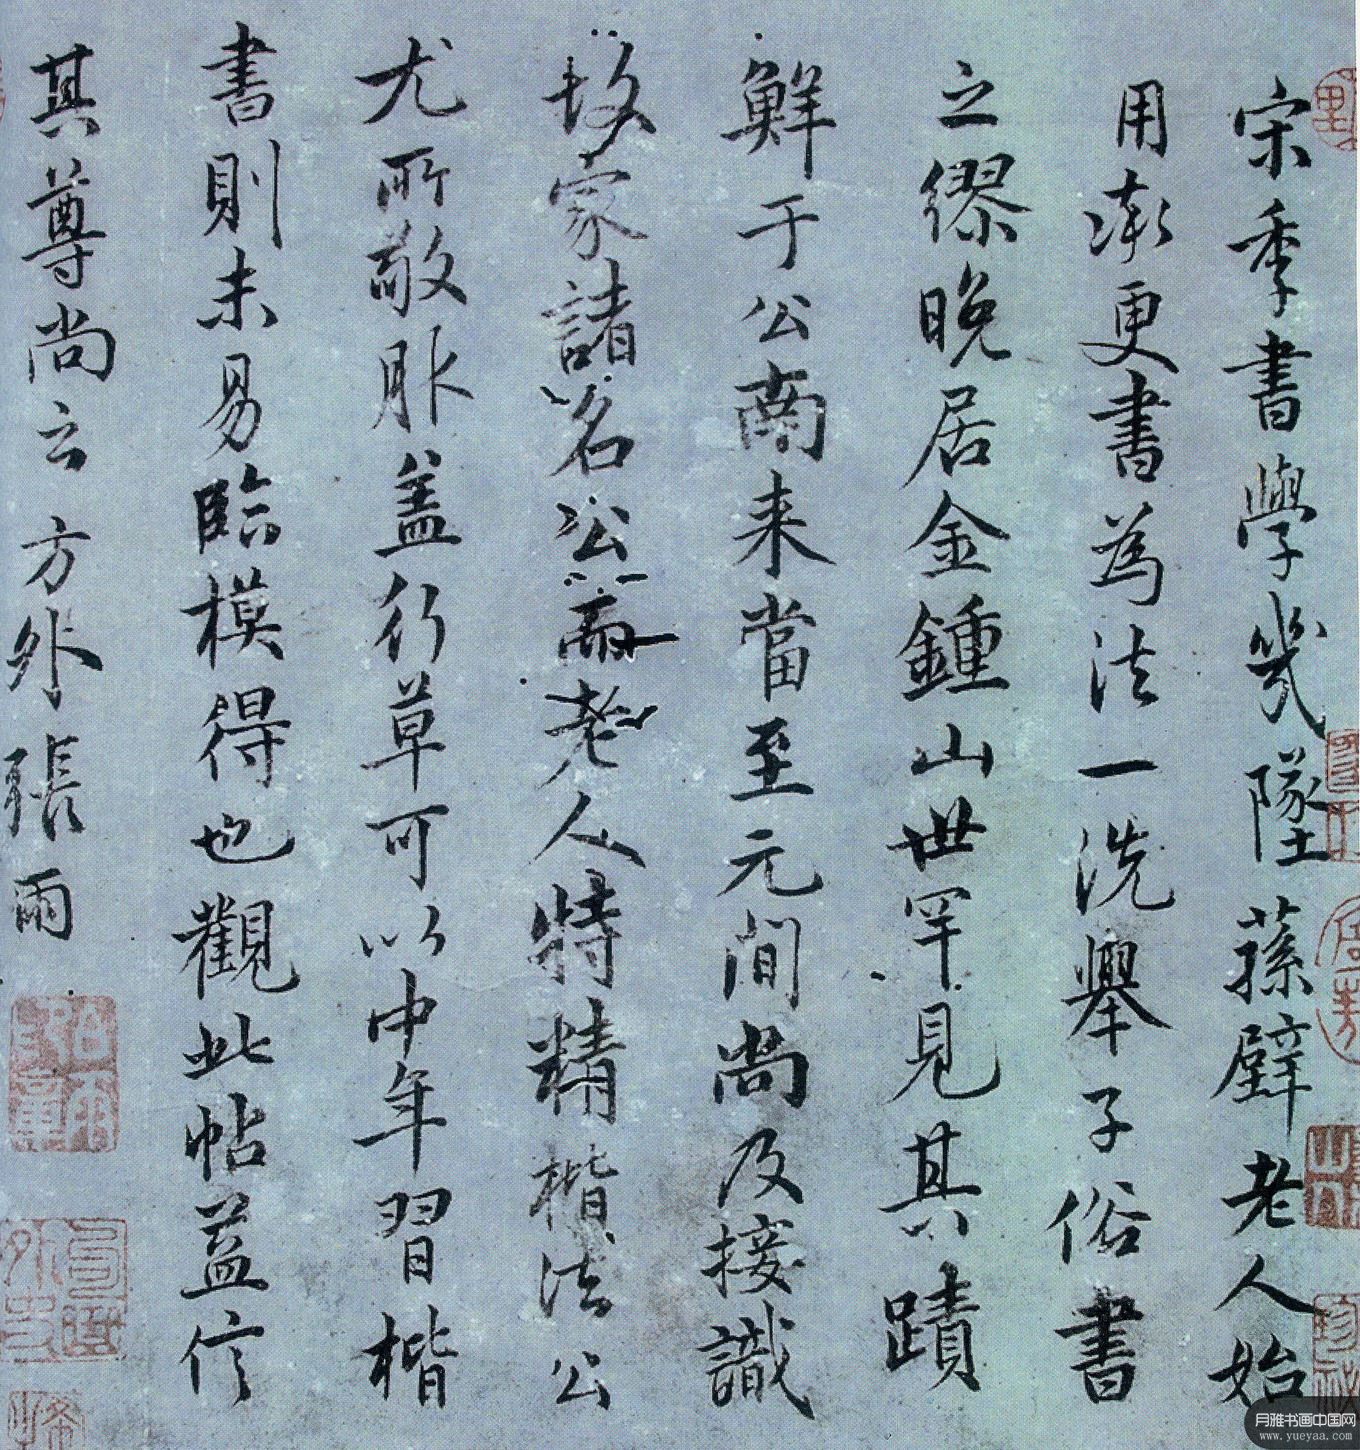 宋季書學幾墜蓀壁老人始
用漸更書為法一洗舉子俗書
之繆晚居金鍾山世罕見其蹟
鮮于公南来當至元間尚及接識
故家諸名公而老人特精楷法公
尤所敬服盖行草可以中年習楷
書則未易臨模得也觀此帖益信
其尊尚云方外張雨
月雅书画中国网
www.yueyaa.com